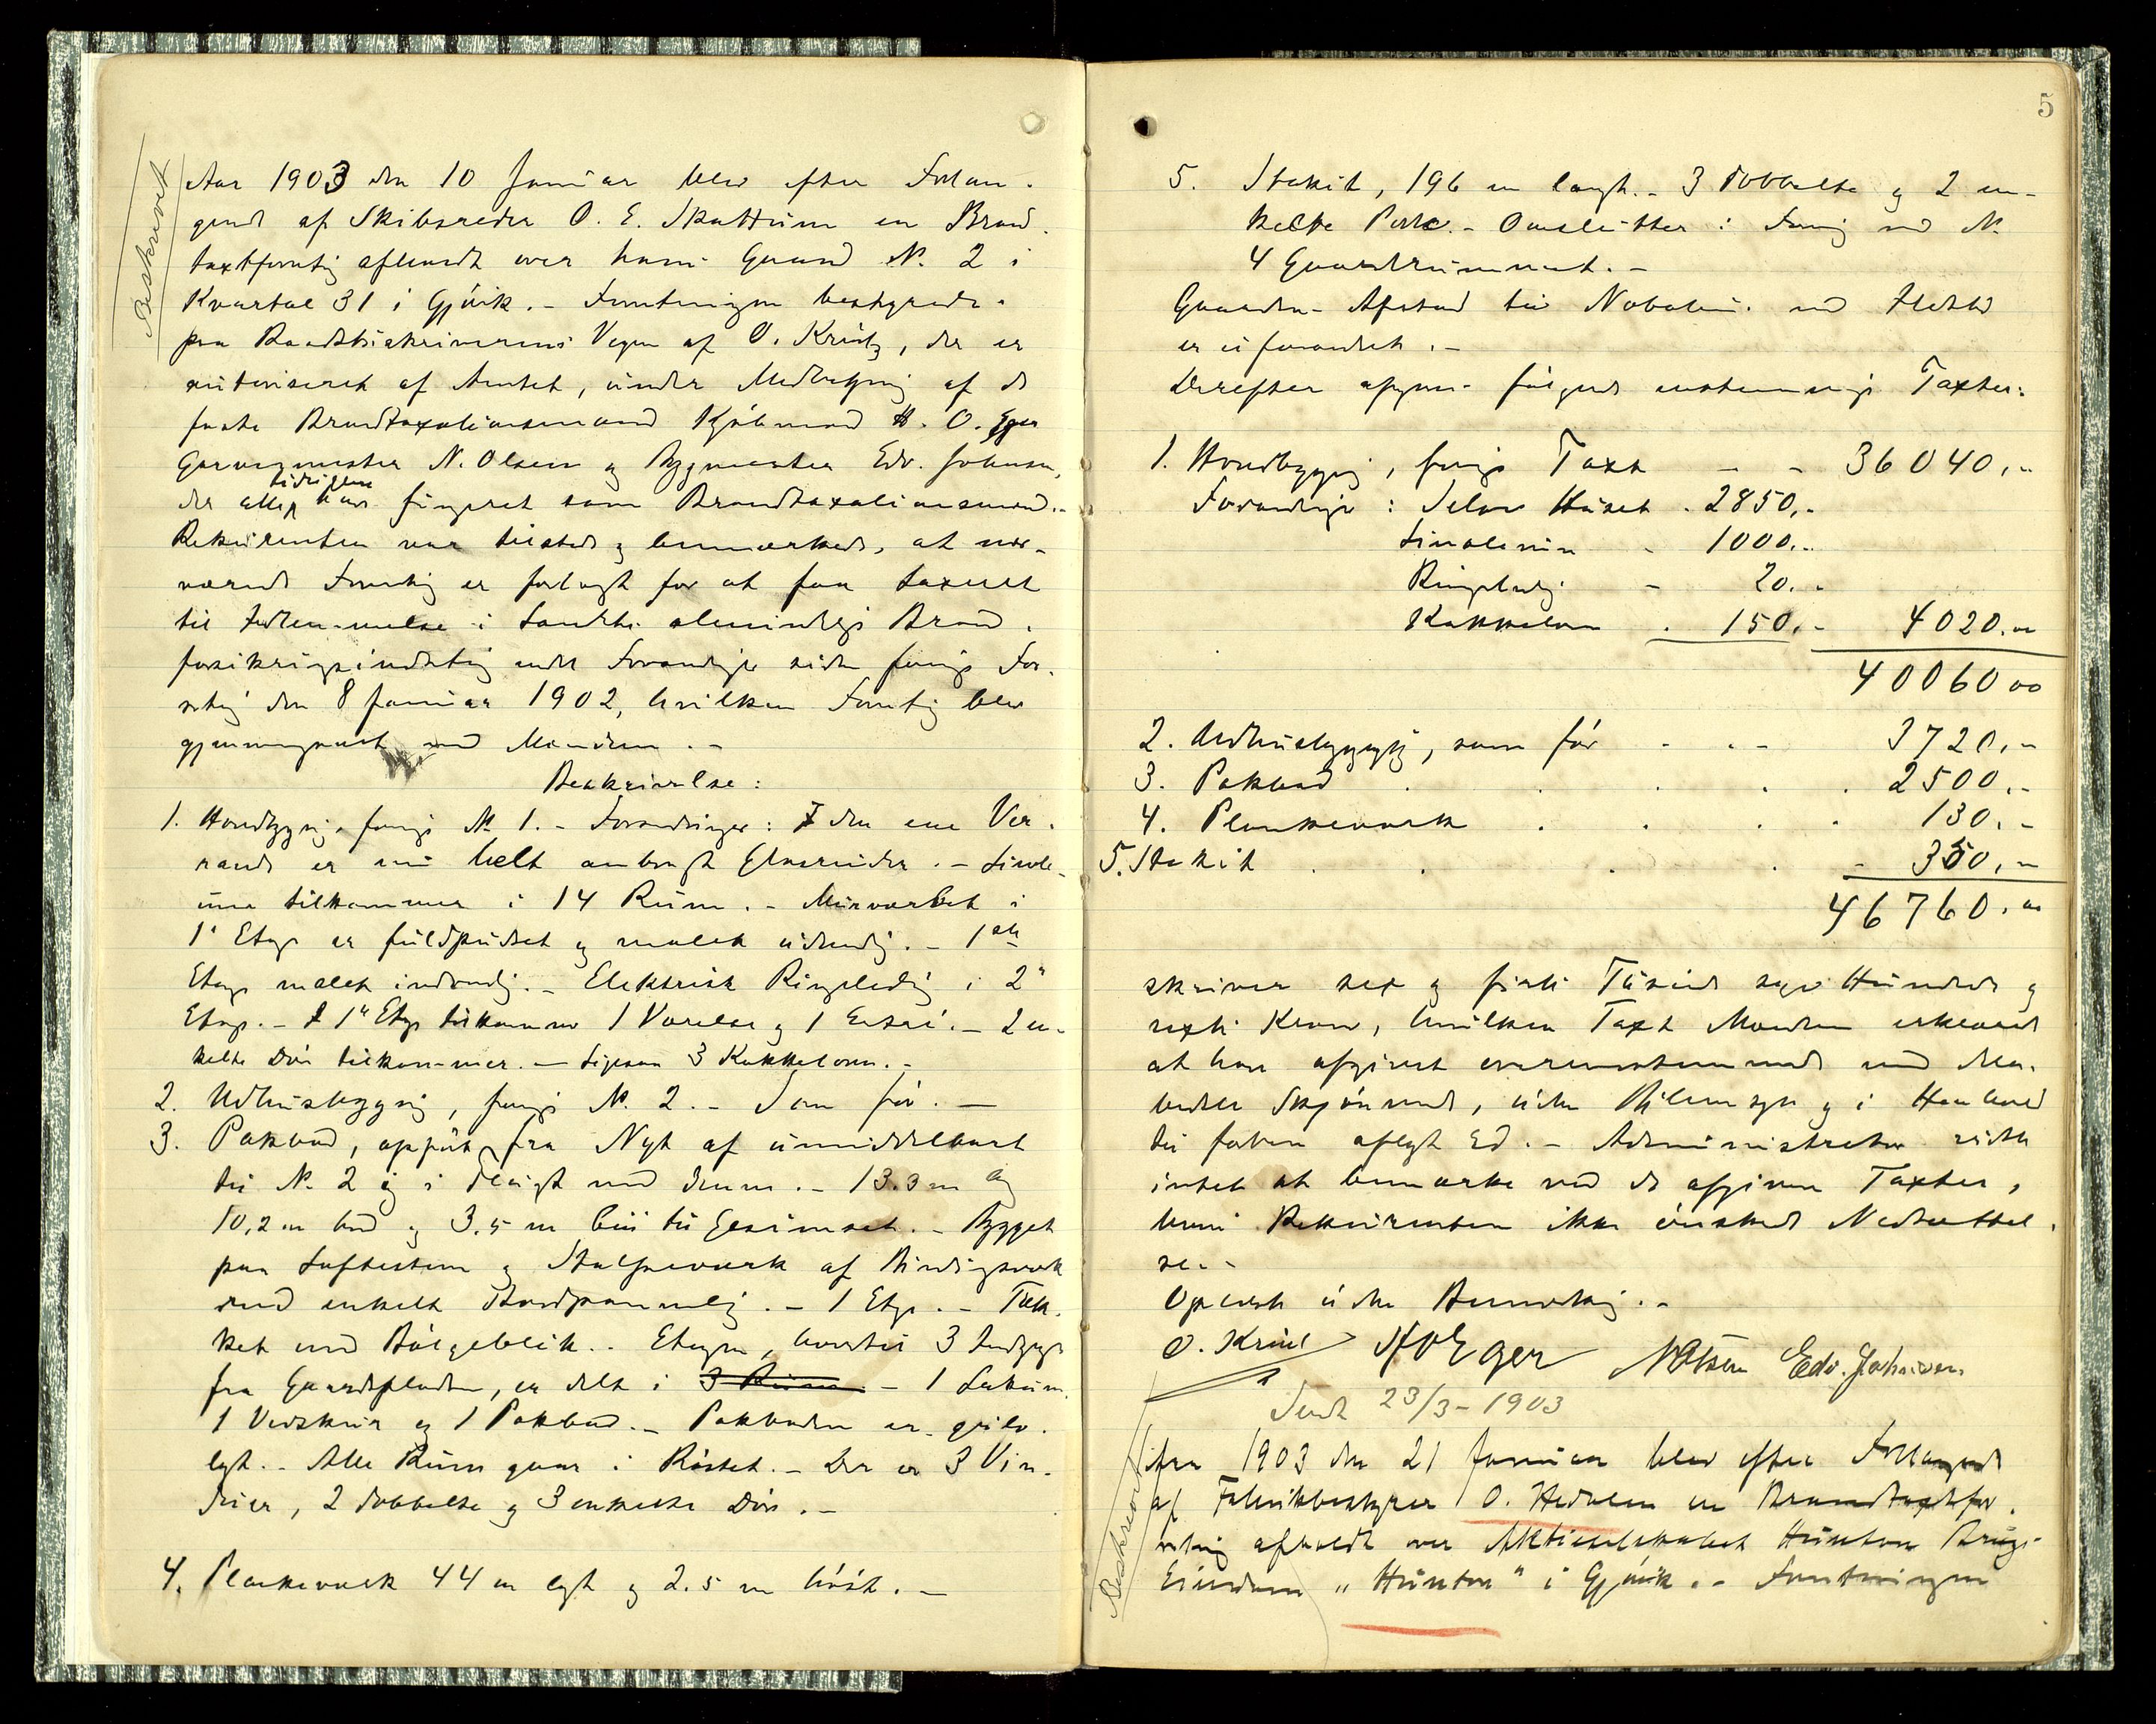 Beskrevet
Aar 1903 den 10 Januar blev efter Forlan-
gende af Skibsreder O. E. Skattum en Brand-
taxtforretning afholdt over hans Gaard N. 2 i
Kvartal 31 i Gjövik. - Forretningen bestyredes
paa Raadstueskriverens Vegne af O. Kreutz, der er
autoriseret af Amtet, under Medvirkning af de
faste Brandtaxationsmænd Kjöbmand H. O. Eger
Garvermester N. Olsen og Bygmester Edv. Johnsen,
tidligere
der alle har fungeret som Brandtaxationsmænd. -
Rekvirenten var tilstede og bemærkede, at nær-
værende Forretning er forlangt for at faa taxeret
til Indlemmelse i Landets almindelige Brand-
forsikringsindretning endel Forandringer siden forrige For-
retning den 8 Januar 1902, hvilken Forretning blev
gjennemgaaet med Mændene. -
Beskrivelse:
1. Hovedbygning, forrige N. 1. - Forandringer: I den ene Ver-
anda er nu helt anbragt Glasruder. - Linole-
um tilkommer i 14 Rum. - Murværket i
1' Etage er fuldpudset og malet udvendig. - 1ste
Etage malet indvendig. - Elektrisk Ringeledning i 2'
Etage. - I 1' Etage tilkommer 1 Værelse og 1 Entré. - 2 en-
kelte Döre tilkommer. - Ligesaa 3 Kakkelovne. -
2. Udhusbygning, forrige N. 2. - Som för. -
3. Pakbod, opfört fra Nyt af umiddelbart
til N. 2 og i Flugt med denne. - 13.3 m lang
10,2 m bred og 3.5 m höi til Gesimset. - Bygget
paa Löftesten og Stolpeværk af Bindingsværk
med enkelt Bordpanneling. - 1 Etage. - Tæk-
ket med Bölgeblik. - Etagen, hvortil 3 Indgange
fra Gaardspladsen, er delt i 3 Rum - 1 Lokum,
1 Vedskur og 1 Pakbod. - Pakboden er gulv-
lagt. - Alle Rum gaar i Röstet. - Der er 3 Vin-
duer, 2 dobbelte og 3 enkelte Döre. -
4. Plankeværk 44 m langt og 2.5 m höit. -
5
5. Stakit, 196 m langt. - 3 dobbelte og 2 en-
kelte Porte. - Omslutter i Forening med N.
4 Gaardsrummet. -
Gaardens Afstand til Nabohuse med Ildsted
er uforandret. -
Derefter afgaves følgende enstemmige Taxter:
1. Hovedbygning, forrige Taxt - - 36040,-
Forandringer: Selve Huset - 2850,-
Linoleum - 1000,-
Ringeledning - 20,-
Kakkelovne - 150,- 4020.00
40060 00
2. Udhusbygning, som för - - - 3720,-
3. Pakbod 2500,-
4. Plankeværk 130,-
5. Stakit 350,-
46760.00
skriver sex og firti Tusinde syv Hundrede og
sexti Kroner, hvilken Taxt Mændene erklærede
at have afgivet overensstemmende med deres
bedste Skjönnende, uden Vilkensyn og i Henhold
til forhen aflagt Ed. - Administrator vidste
intet at bemærke ved de afgivne Taxter,
hvori Rekvirenten ikke önskede Nedsættel-
se. -
Oplæst uden Bemærkning. -
O. Kreutz H O Eger N Olsen Edv. Johnsen.
Sendt 23/3 - 1903
Beskrevet
Aar 1903 den 21 Januar blev efter Forlangende
af Fabrikbestyrer O. Hedalen en Brandtaxtfor-
retning afholdt over Aktieselskabet Hunton Brugs
Eiendom „Hunton" i Gjövik. - Forretningen